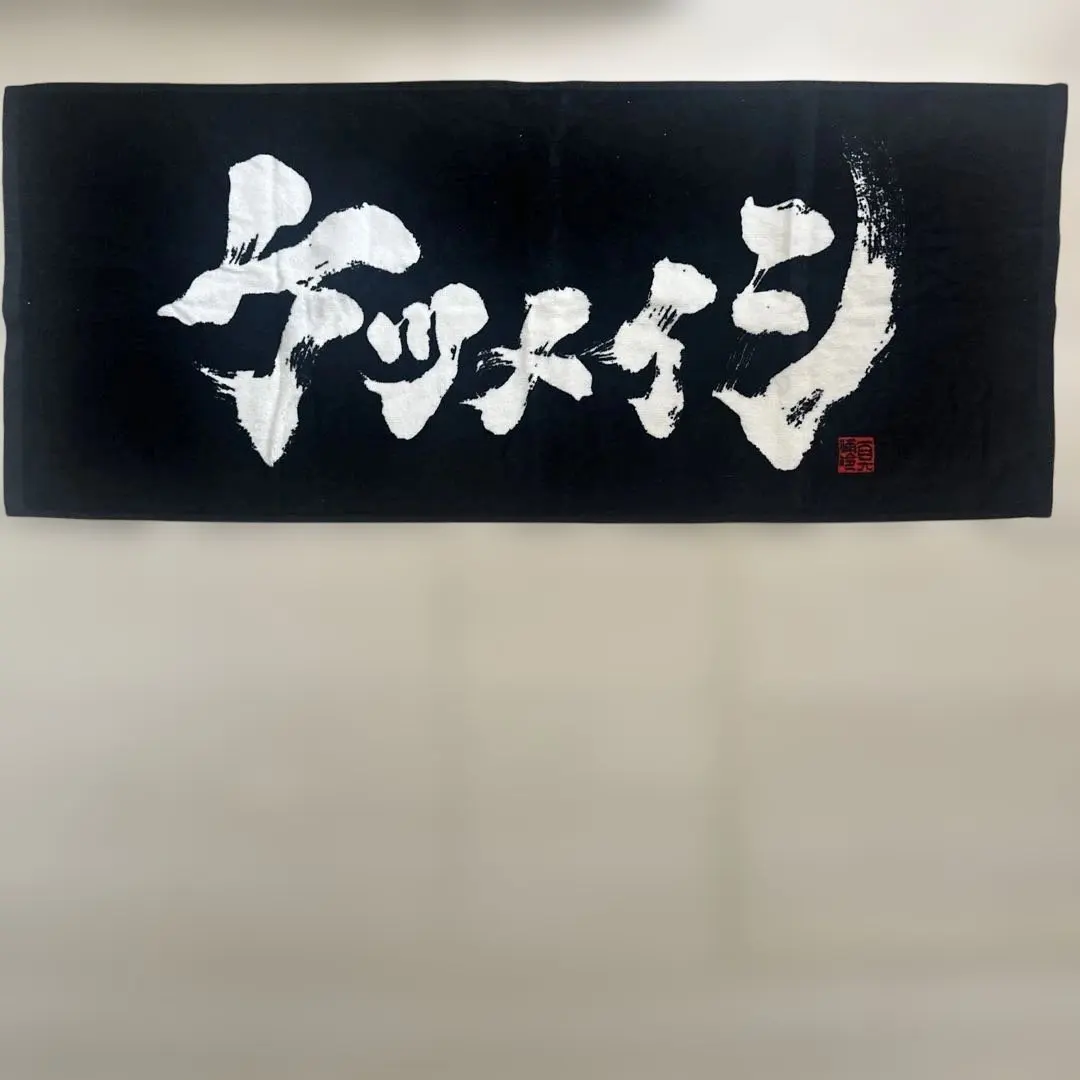 ケツメイシ